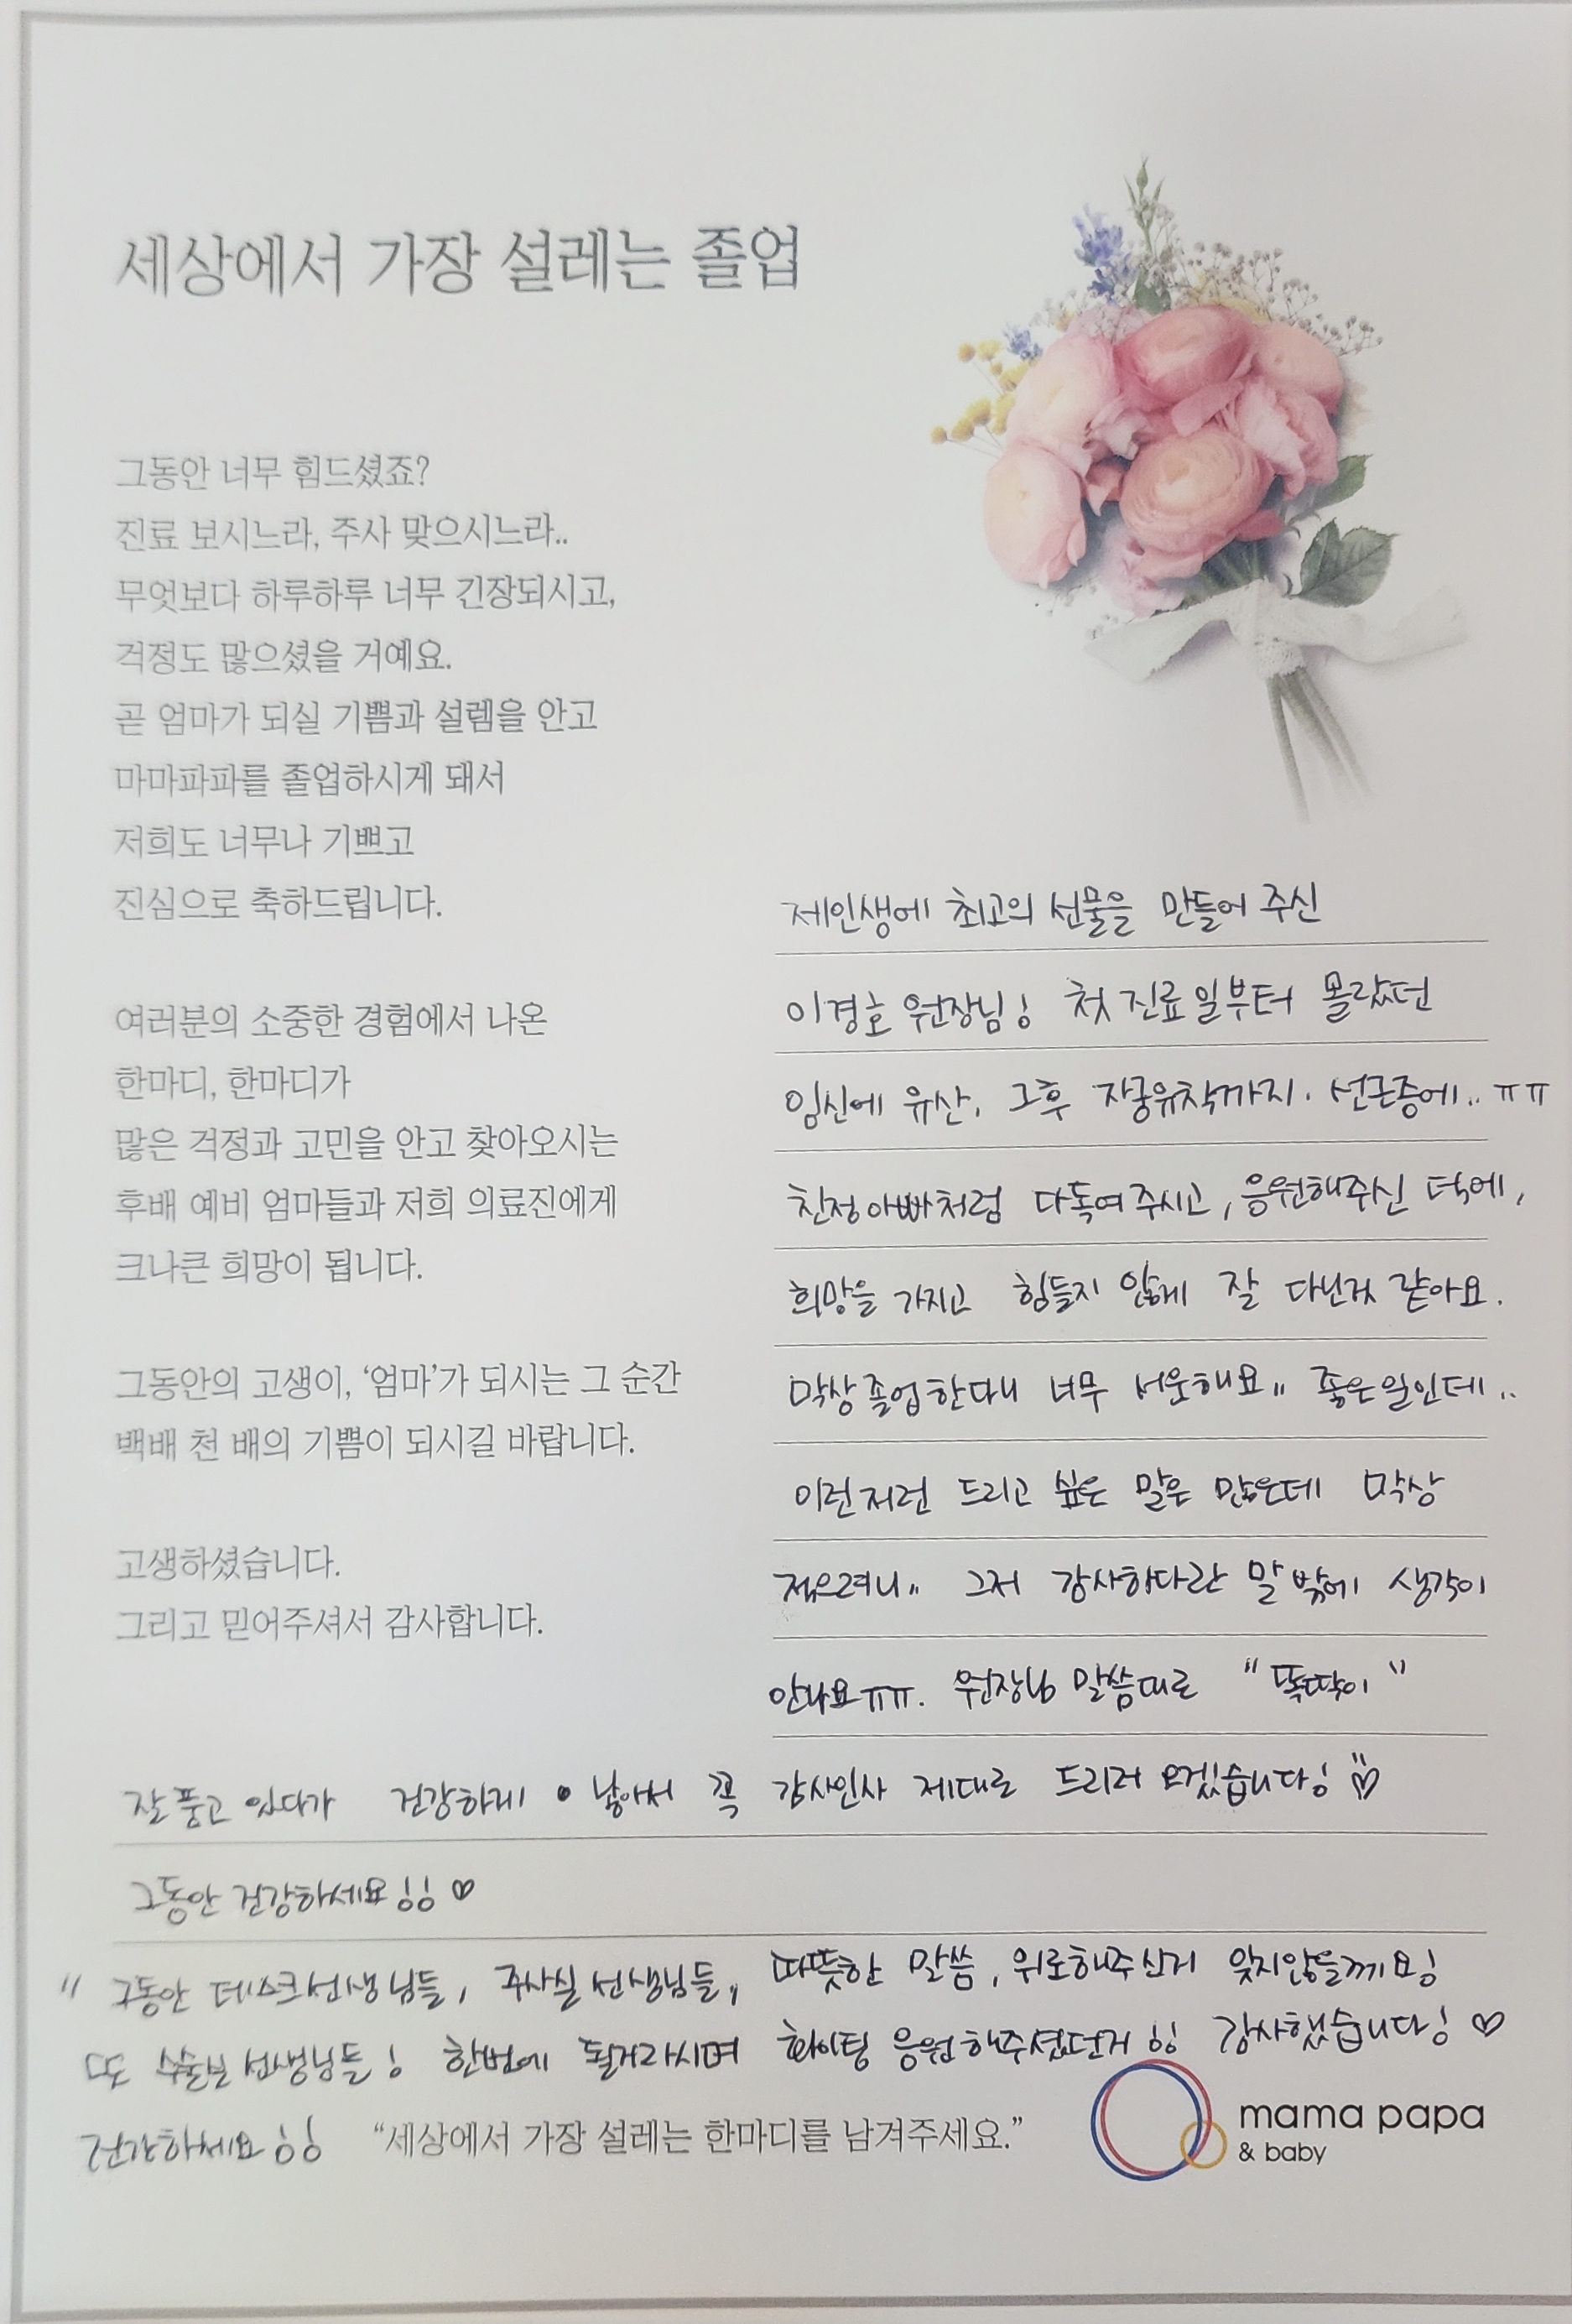 세상에서 가장 설레는 졸업
그동안 너무 힘드셨죠?
진료 보시느라, 주사 맞으시느라..
무엇보다 하루하루 너무 긴장되시고,
걱정도 많으셨을 거예요.
곧 엄마가 되실 기쁨과 설렘을 안고
마마파파를 졸업하시게 돼서
저희도 너무나 기쁘고
진심으로 축하드립니다.
여러분의 소중한 경험에서 나온
한마디, 한마디가
많은 걱정과 고민을 안고 찾아오시는
후배 예비 엄마들과 저희 의료진에게
크나큰 희망이 됩니다.
그동안의 고생이, ‘엄마’가 되시는 그 순간
백배 천 배의 기쁨이 되시길 바랍니다.
고생하셨습니다.
그리고 믿어주셔서 감사합니다.
제인생에 최고의 선물을 만들어 주신
이경호 원장님! 첫 진료일부터 몰랐던
임신에 유산, 그후 자궁유착까지. 선근증에.. ㅠㅠ
친정아빠처럼 다독여주시고, 응원해주신 덕에,
희망을 가지고 힘들지 않게 잘 다닌것 같아요.
막상졸업한다니 너무 서운해요" 좋은일인데..
이런저런 드리고 싶은 말은 많은데 막상
적으려니" 그저 감사하다란 말밖에 생각이
안나요ㅠㅠ. 원장님 말씀대로 "똑딱이"
잘품고 있다가 건강하게 낳아서 꼭 감사인사 제대로 드리러 오겠습니다! ♡
그동안 건강하세요!! ♡
" 그동안 데스크선생님들, 주사실선생님들, 따뜻한 말씀, 위로해주신거 잊지않을께요!
또 수술부선생님들! 한번에 될거라시며 화이팅 응원해주셨던거!! 감사했습니다! ♡
건강하세요!!
“세상에서 가장 설레는 한마디를 남겨주세요.”
mama papa
& baby